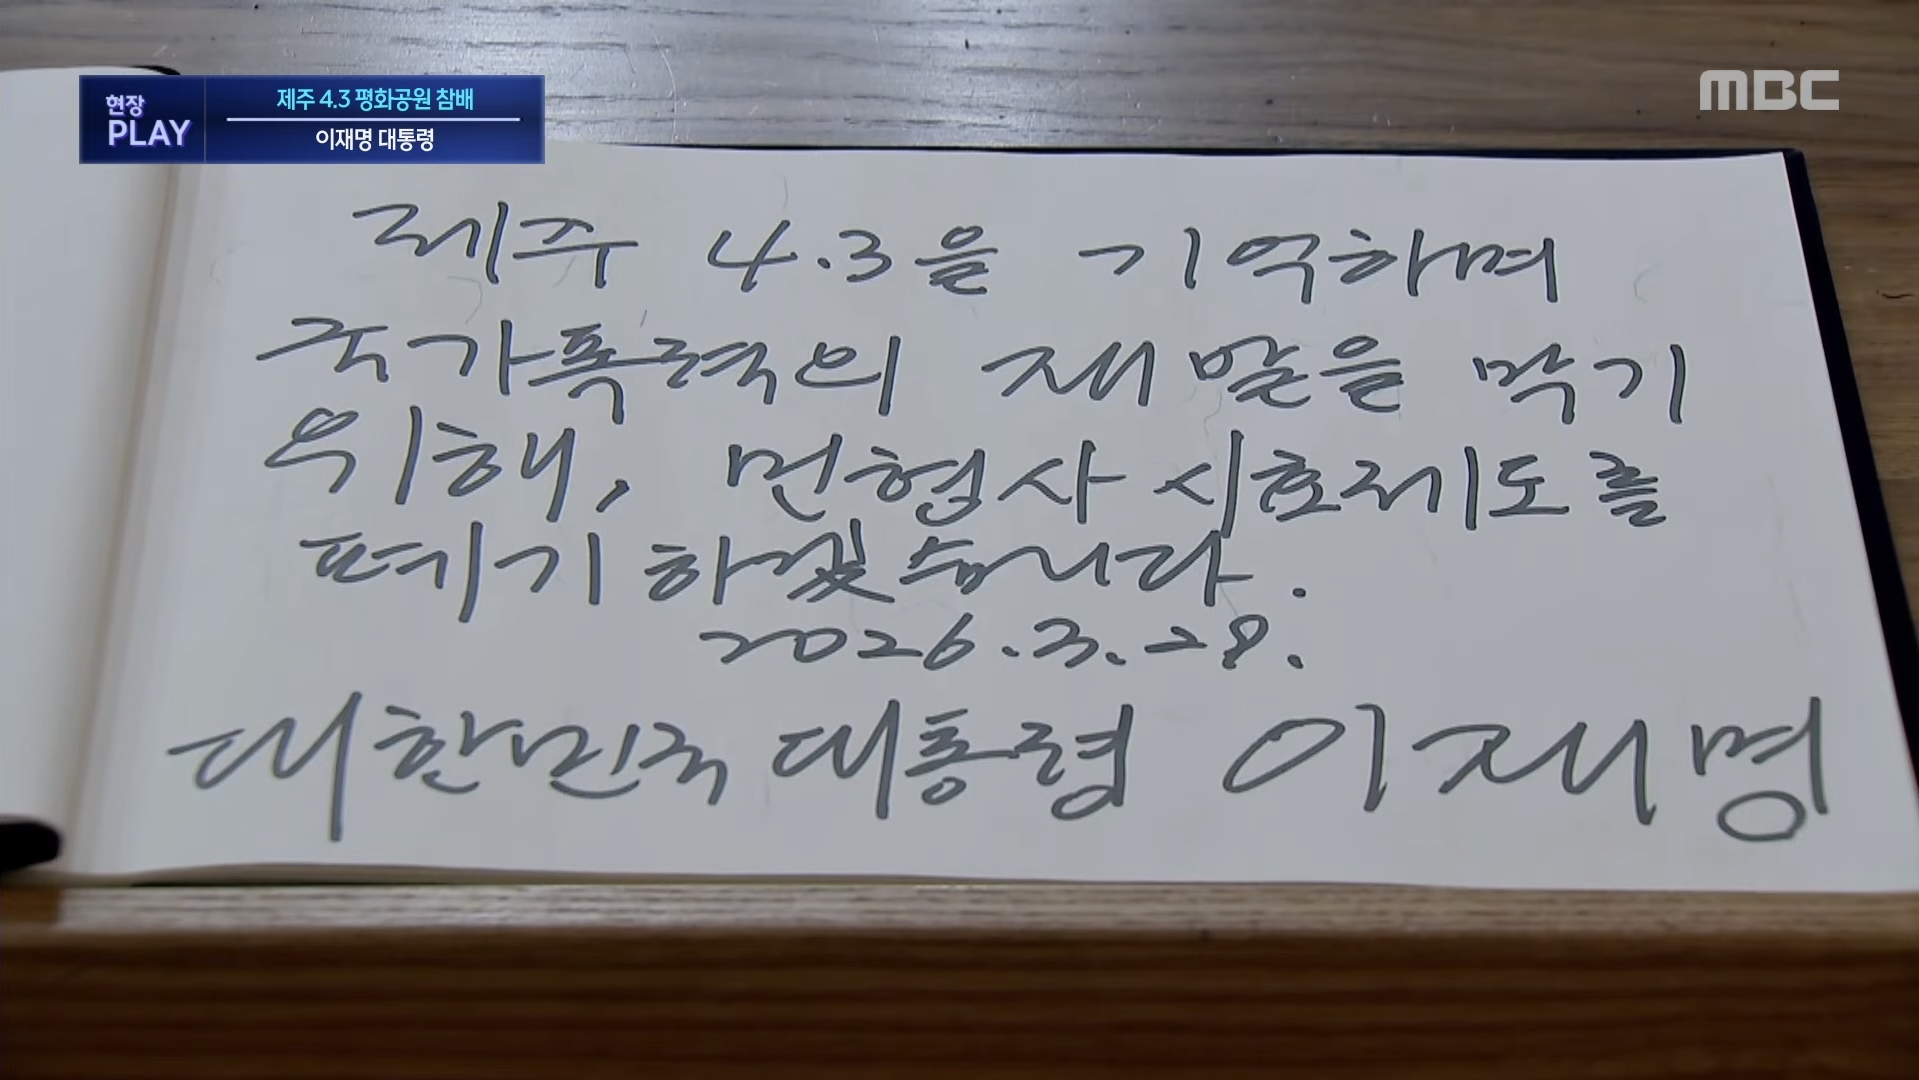 현장
PLAY
제주 4.3 평화공원 참배
이재명 대통령
MBC
제주 4.3을 기억하며
국가폭력의 재발을 막기
위해, 민형사 시효제도를
폐기 하겠습니다.
2026.3.29.
대한민국 대통령 이재명